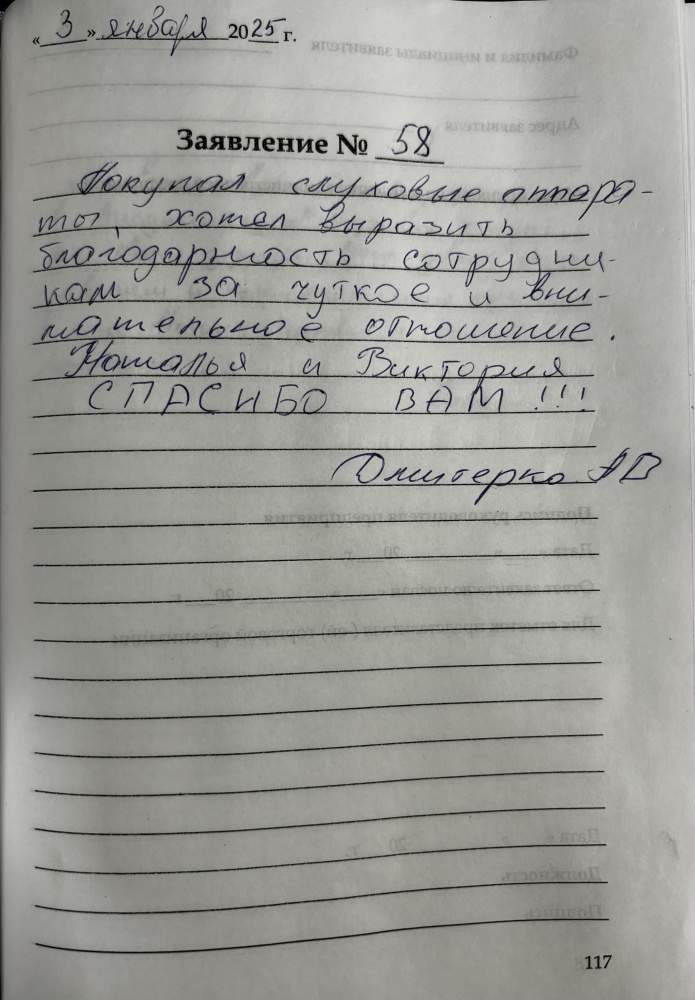 « 3 » января 2025 г.
Заявление № 58
Покупал слуховые аппара-
ты, хотел выразить
благодарность сотрудни-
кам за чуткое и вни-
мательное отношение.
Наталья и Виктория
СПАСИБО ВАМ!!!
Дмитерко АВ
117